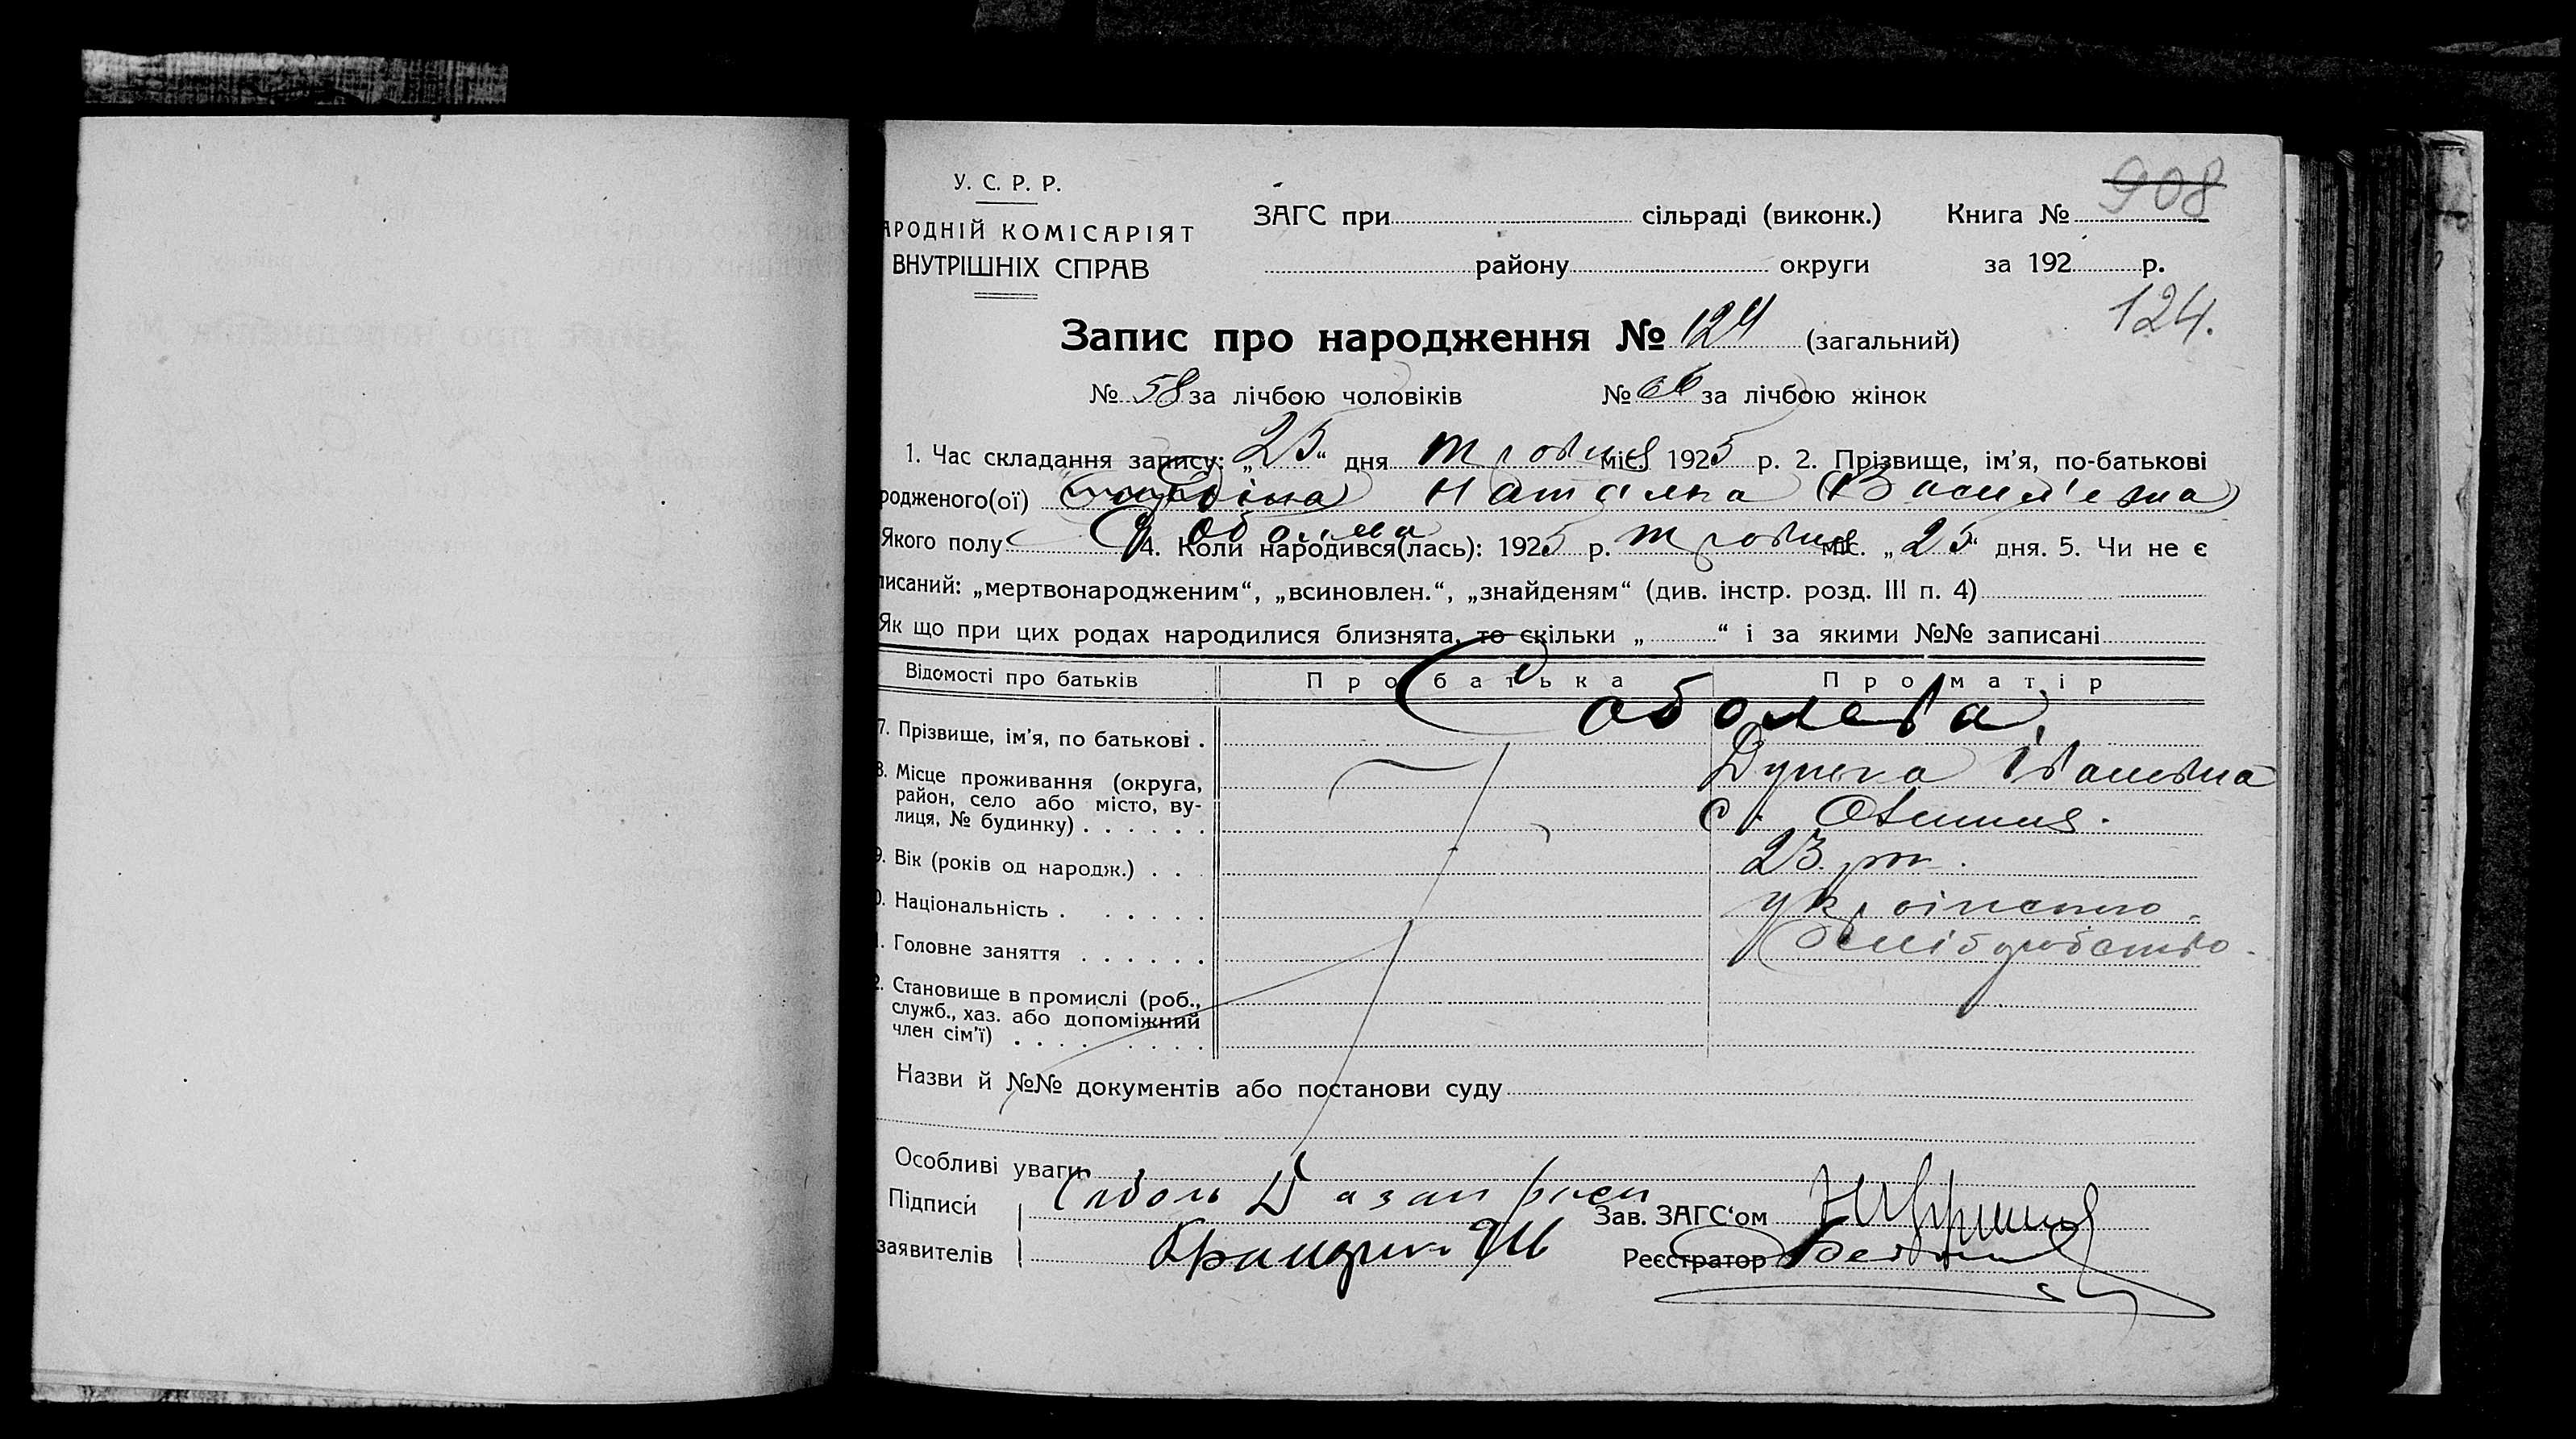 908
У. С. Р. Р.
АРОДНІЙ КОМІСАРІЯТ
ВНУТРІШНІХ СПРАВ
ЗАГС при сільраді (виконк.) Книга №
району округи за 192 р.
124.
Запис про народження № 124 (загальний)
№ 58 за лічбою чоловіків № 66 за лічбою жінок
1. Час складання запису: „25“ дня травня міс. 1925 р. 2. Прізвище, ім’я, по-батькові
родженого(ої) Наталка (Васил'евна)
Якого полу 4. Коли народився(лась): 1925 р. травня міс. „25“ дня. 5. Чи не є
писаний: „мертвонародженим“, „всиновлен.“, „знайденям“ (див. інстр. розд. III п. 4)
Як що при цих родах народилися близнята, то скільки „ “ і за якими №№ записані
Відомості про батьків Про батька Про матір
7. Прізвище, ім’я, по батькові . Соболева,
Дунька Івановна
8. Місце проживання (округа,
район, село або місто, ву-
лиця, № будинку) . . . . . . с.
9. Вік (років од народж.) . . 23 рт.
0. Національність . . . . . .
1. Головне заняття . . . . . . Хліборобство.
2. Становище в промислі (роб.,
служб., хаз. або допоміжний
член сім’ї) . . . . . . . .
Назви й №№ документів або постанови суду
Особливі уваги
Підписи Соболь
Зав. ЗАГС‘ом
заявителів
Реєстратор